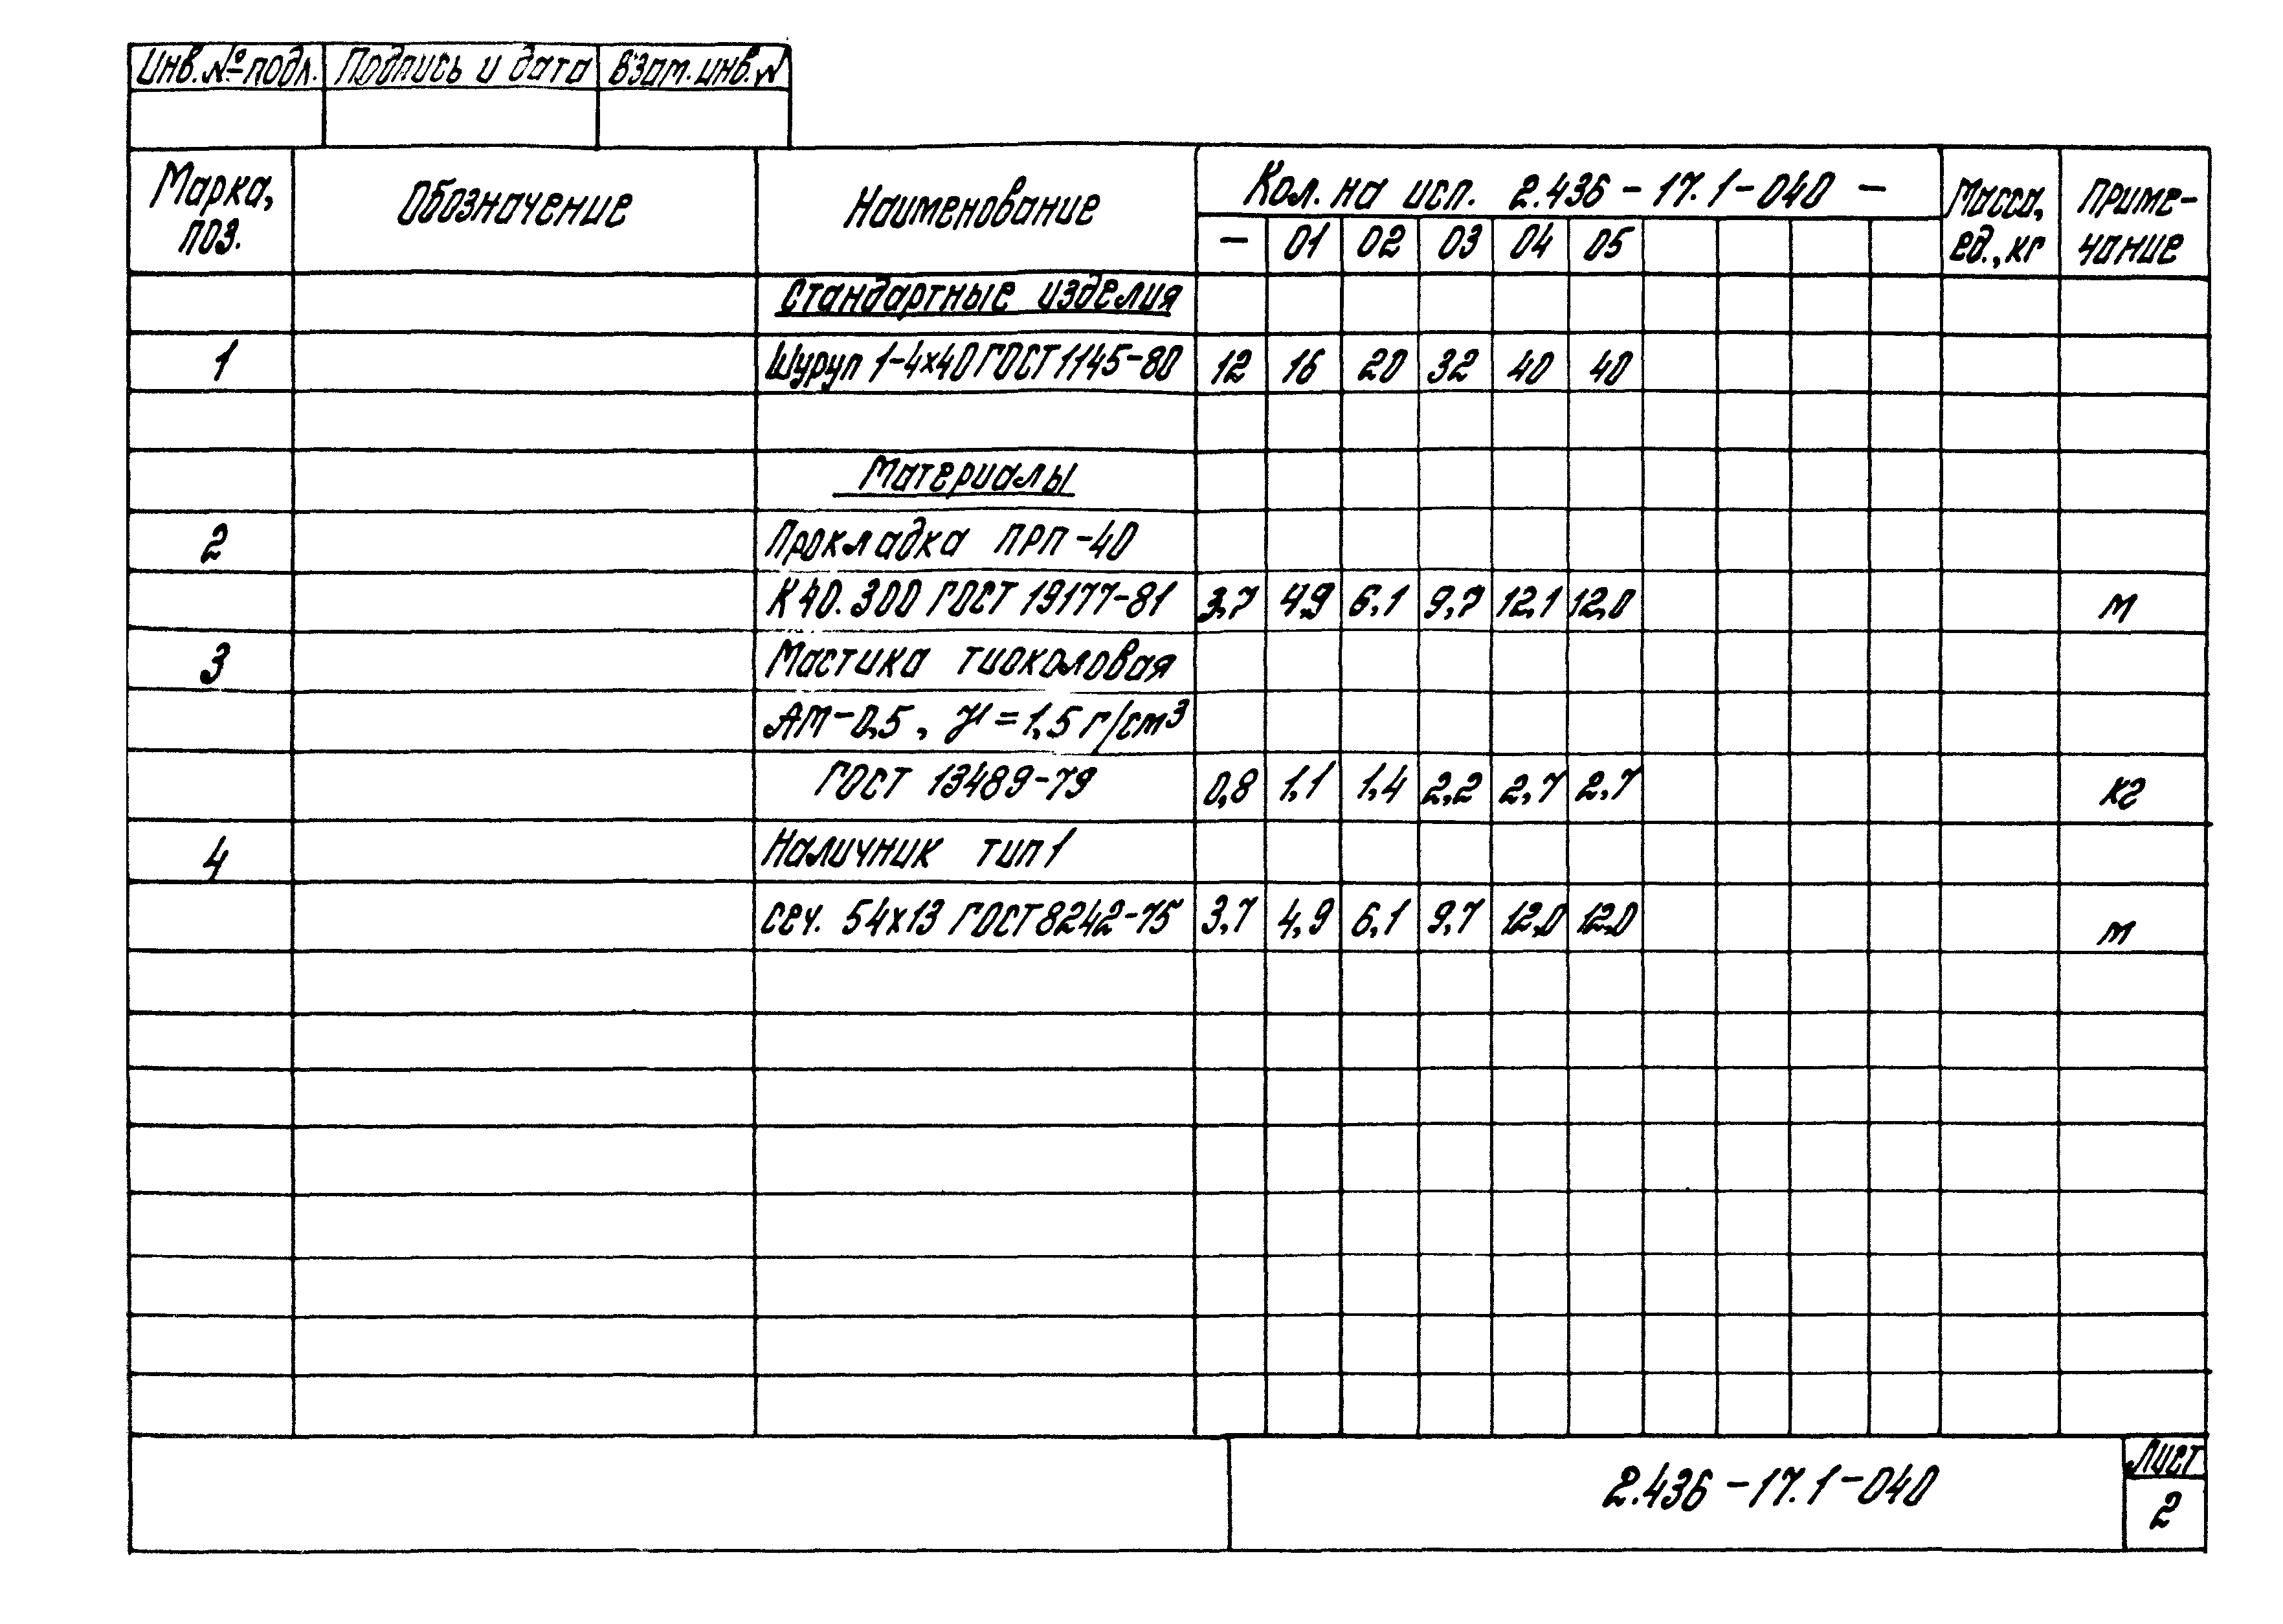 Инв. № подл. Подпись и дата Взам. инв. №
Марка, поз. Обозначение Наименование Кол. на исп. 2.436-17.1-040- Масса, ед., кг Приме-чание
- 01 02 03 04 05
Стандартные изделия
1 Шуруп 1-4х40 ГОСТ 1145-80 12 16 20 32 40 40
Материалы
2 Прокладка ПРП-40
К40.300 ГОСТ 19177-81 3,7 4,9 6,1 9,7 12,1 12,0 м
3 Мастика тиоколовая
АМ-0,5, γ=1,5 г/см³
ГОСТ 13489-79 0,8 1,1 1,4 2,2 2,7 2,7 кг
4 Наличник тип 1
сеч. 54х13 ГОСТ 8242-75 3,7 4,9 6,1 9,7 12,0 12,0 м
2.436-17.1-040
Лист
2